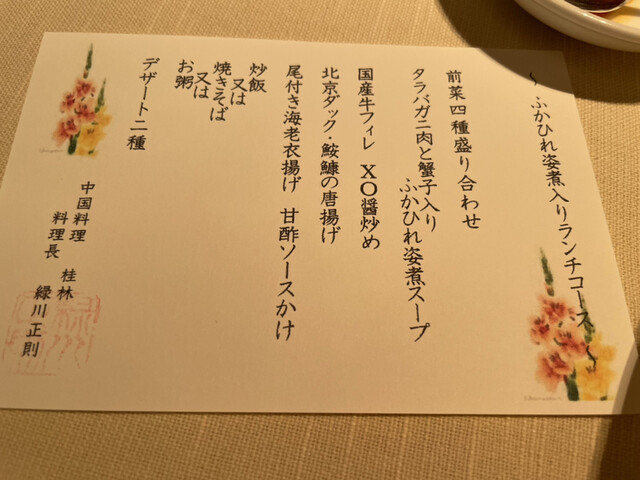 ～ ふかひれ姿煮入りランチコース ～
前菜四種盛り合わせ
タラバガニ肉と蟹子入り
ふかひれ姿煮スープ
国産牛フィレ XO醤炒め
北京ダック・鮟鱇の唐揚げ
尾付き海老衣揚げ 甘酢ソースかけ
炒飯
又は
焼きそば
又は
お粥
デザート二種
中国料理 桂林
料理長 緑川正則